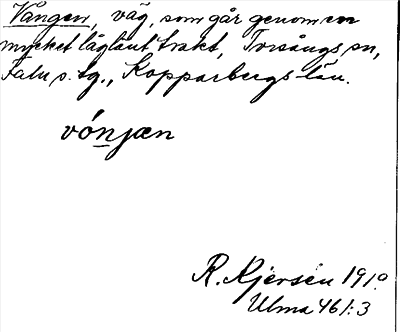 Vången, väg, som går genom en
mycket låglänt trakt, Torsångs sn,
Falu s. tg., Kopparbergs län.
vónjæn
R. Kjersén 1910
Ulma 461:3